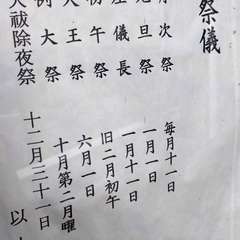 祭儀
次祭 毎月十一日
旦祭 一月一日
儀長 一月十一日
午祭 旧二月初午
大王祭 六月一日
例大祭 十月第二月曜
大祓除夜祭 十二月三十一日
以